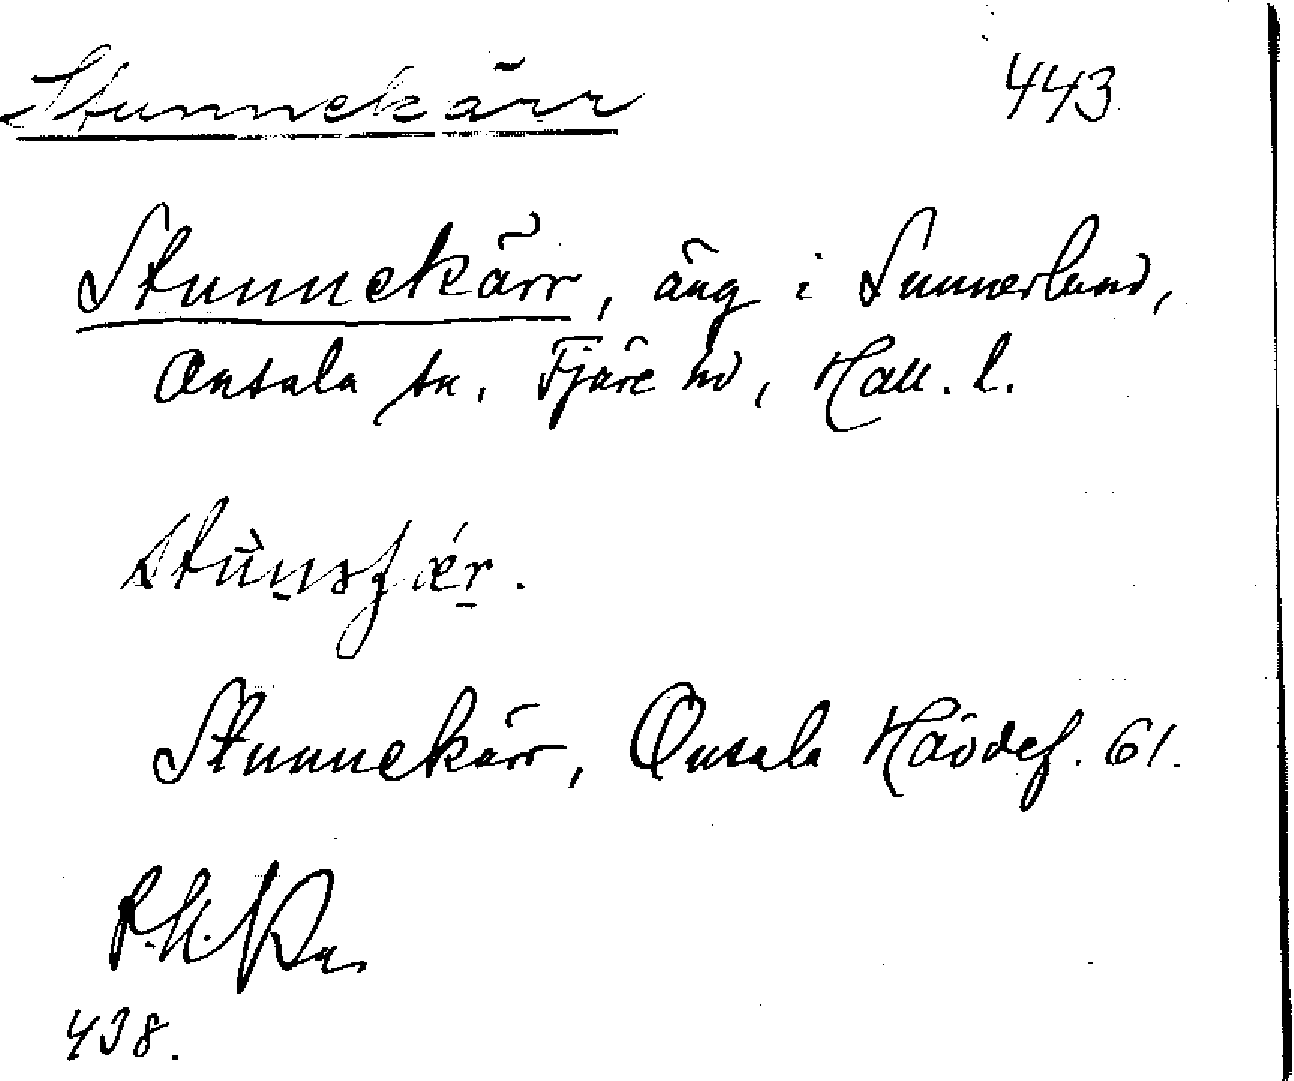 Stunnekärr 443
Stunnekärr, äng i Sunnerlund,
Onsala sn. Fjäre hd, Hall. l.
Stunnekärr, Onsala Hävdef. 61.
438.